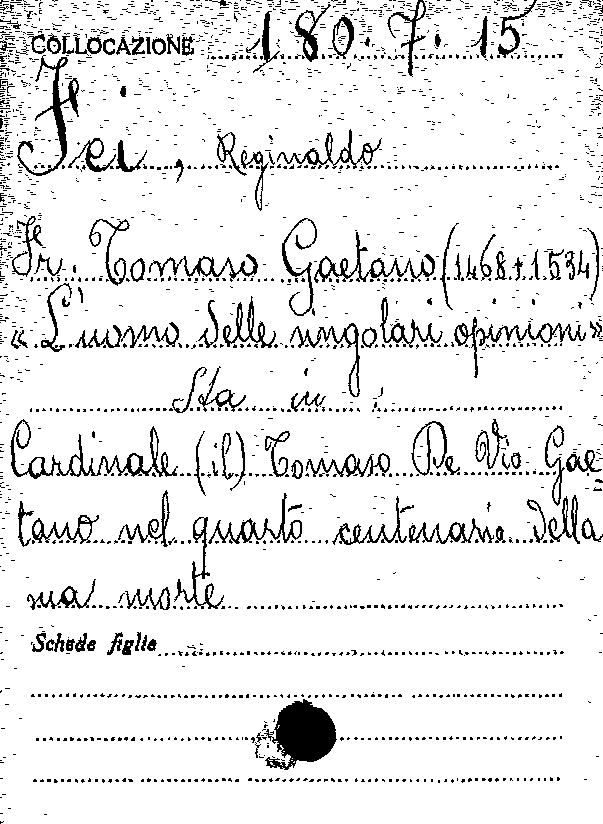 COLLOCAZIONE 180.7.15
Fei, Reginaldo
Fr. Tomaso Gaetano (1468+1534)
« L'uomo delle singolari opinioni »
Sta in :
Cardinale (il) Tomaso De Vio Gae=
tano nel quarto centenario della
sua morte
Schede figlie